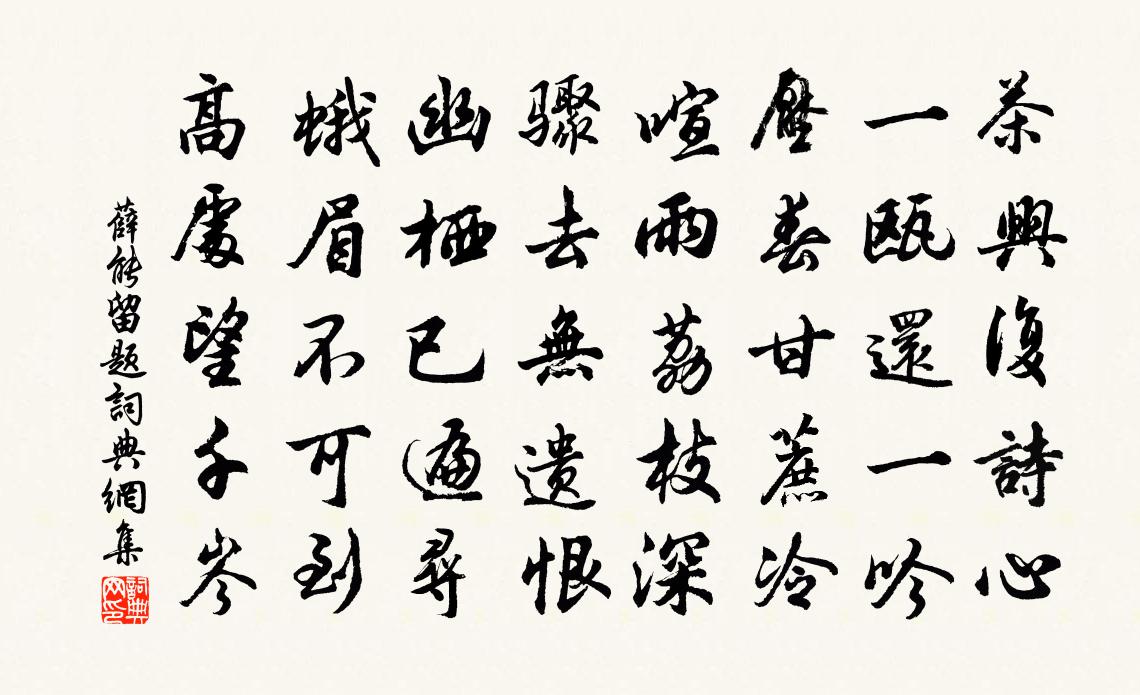 茶興復詩心
一甌還一吟
壓春甘蔗冷
喧雨荔枝深
驟去無遺恨
幽栖已遍尋
蛾眉不可到
高處望千岑
薛能留題詞典網集
詞典網印